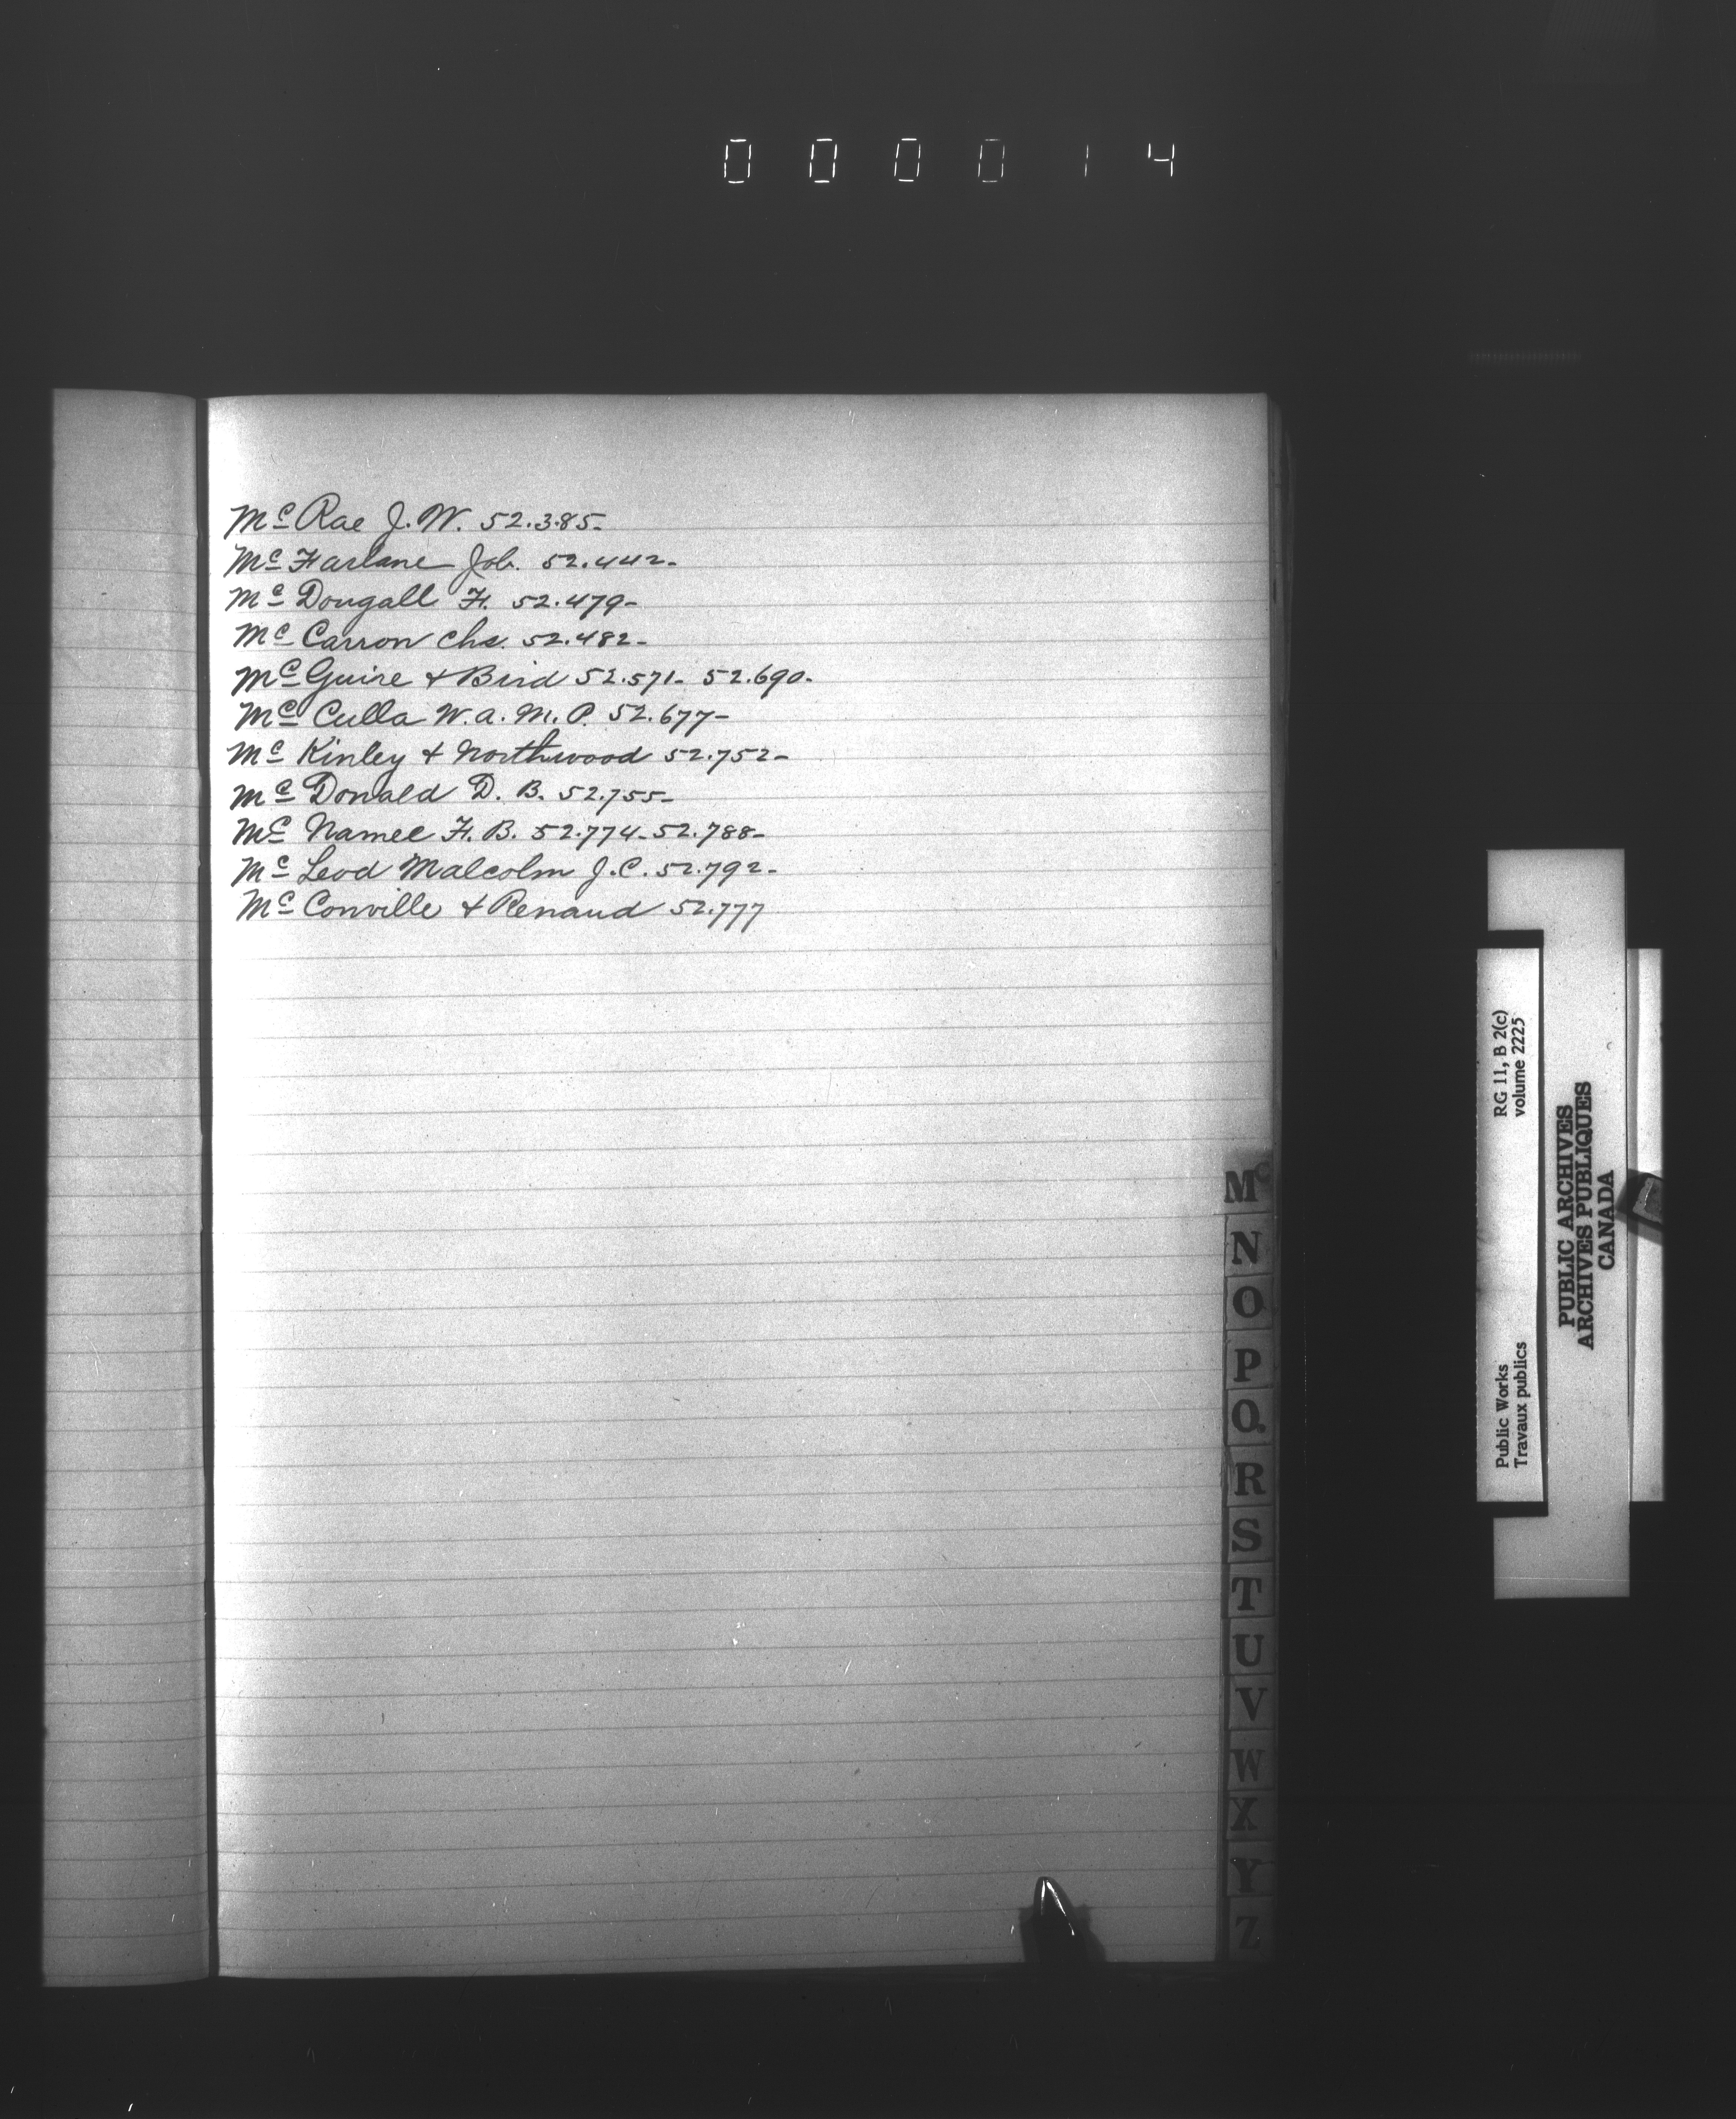 000014
Mc Rae J. W. 52.385-
Mc Farlane Job. 52.442-
Mc Dougall F. 52.479-
Mc Carron Chs. 52.482-
Mc Guire & Bird 52.571- 52.690-
Mc Culla W. A. M. P. 52.677-
Mc Kinley & Northwood 52.752-
Mc Donald D. B. 52.755-
Mc Namee F. B. 52.774- 52.788-
Mc Leod Malcolm J. C. 52.792-
Mc Conville & Renaud 52.777
Mc
N
O
P
Q
R
S
T
U
V
W
X
Y
Z
Public Works
Travaux publics
RG 11, B 2(c)
volume 2225
PUBLIC ARCHIVES
ARCHIVES PUBLIQUES
CANADA